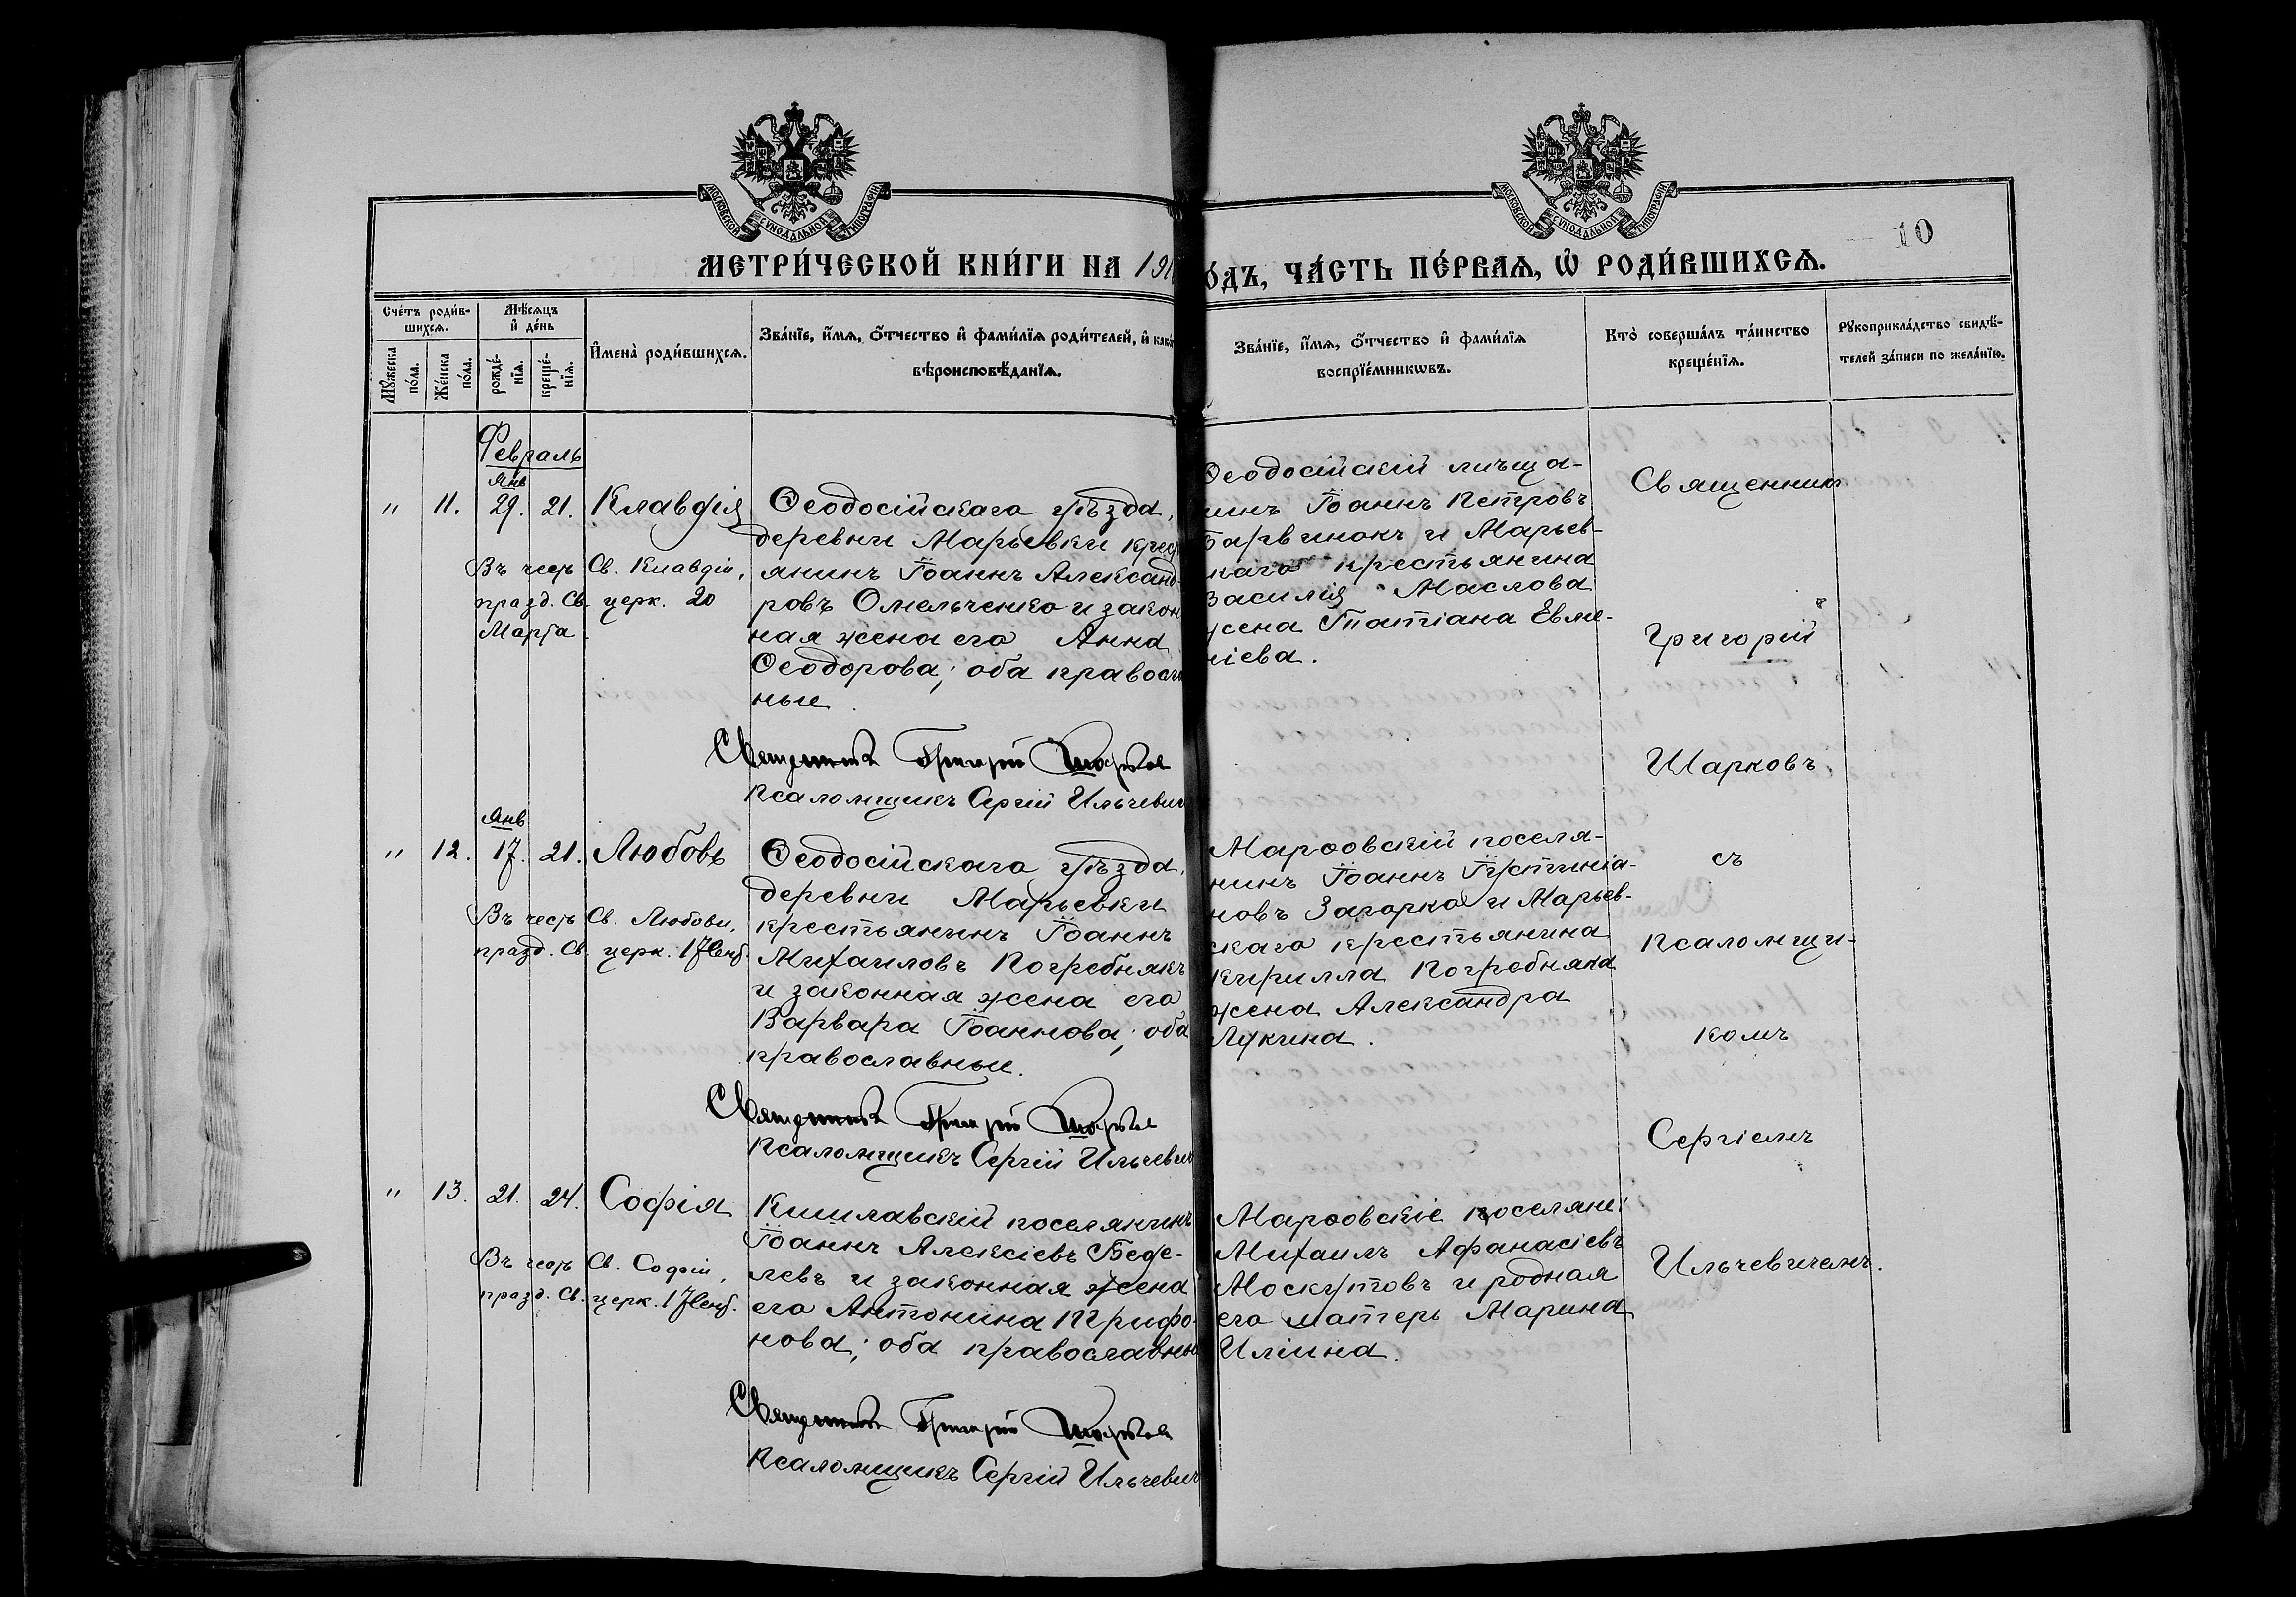 МОСКОВСКОЙ СѴНОДАЛЬНОЙ ТИПОГРАФІИ
МОСКОВСКОЙ СѴНОДАЛЬНОЙ ТИПОГРАФІИ
10
МЕТРИ́ЧЕСКОЙ КНИ́ГИ НА 191
О́ДЪ, ЧА́СТЬ ПЕ́РВАѦ, Ѡ҆ РОДИ́ВШИХСѦ.
Сче́тъ роди́в-
шихсѧ.
Мѣ́сѧцъ
и҆ де́нь
Мꙋ́жеска
по́ла.
Же́нска
по́ла.
рожде́-
нїѧ.
креще́-
нїѧ.
И҆мена̀ роди́вшихсѧ.
Зва́нїе, и҆́мѧ, ѻ҆́тчество и҆ фами́лїѧ роди́телей, и҆ како́
вѣроисповѣ́данїѧ.
Зва́нїе, и҆́мѧ, ѻ҆́тчество и҆ фами́лїѧ
воспрїе́мникѡвъ.
Кто̀ соверша́лъ та́инство
креще́нїѧ.
Рꙋкоприкла́дство свидѣ́-
телей за́писи по жела́нїю.
Февраль
Янв
" 11. 29. 21. Клавдія
Въ честь Св. Клавдіи,
празд. Св. церк. 20
Марта.
Ѳеодосійскаго уѣзда,
деревни Марьевки крест
янинъ Іоаннъ Александ-
ровъ Омельченко и закон
ная жена его Анна
Ѳеодорова; оба правосла
ные
Священникъ Григорій Шарковъ
Псаломщикъ Сергій Ильчевич
Ѳеодосійскій мѣща-
нинъ Іоаннъ Петровъ
Барвинокъ и Марьев-
скаго крестьянина
Василія Маслова
жена Татіана Евме-
ніева.
Священник
Григорій
Шарковъ
съ
Псаломщи-
комъ
Сергіемъ
Ильчевичемъ.
Янв
" 12. 17. 21. Любовь
Въ честь Св. Любови,
празд. Св. церк. 17 Сент.
Ѳеодосійскаго уѣзда,
деревни Марьевки
крестьянинъ Іоаннъ
Михаиловъ Погребнякъ
и законная жена его
Варвара Іоаннова; оба
православные.
Священникъ Григорій Шарковъ
Псаломщикъ Сергій Ильчевич
Марѳовскій поселя-
нинъ Іоаннъ Іустиніа-
новъ Загорка и Марьев-
скаго крестьянина
Кирилла Погребняка
жена Александра
Лукина.
" 13. 21. 24. Софія
Въ честь Св. Софіи,
празд. Св. церк. 17 Сент.
Кишлавскій поселянинъ
Іоаннъ Алексіевъ Беде-
левъ и законная жена
его Антонина Трифо-
нова; оба православны
Священникъ Григорій Шарковъ
Псаломщикъ Сергій Ильчевич
Марѳовскіе поселяне:
Михаилъ Афанасіевъ
Москутовъ и родная
его матерь Марина
Иліина.